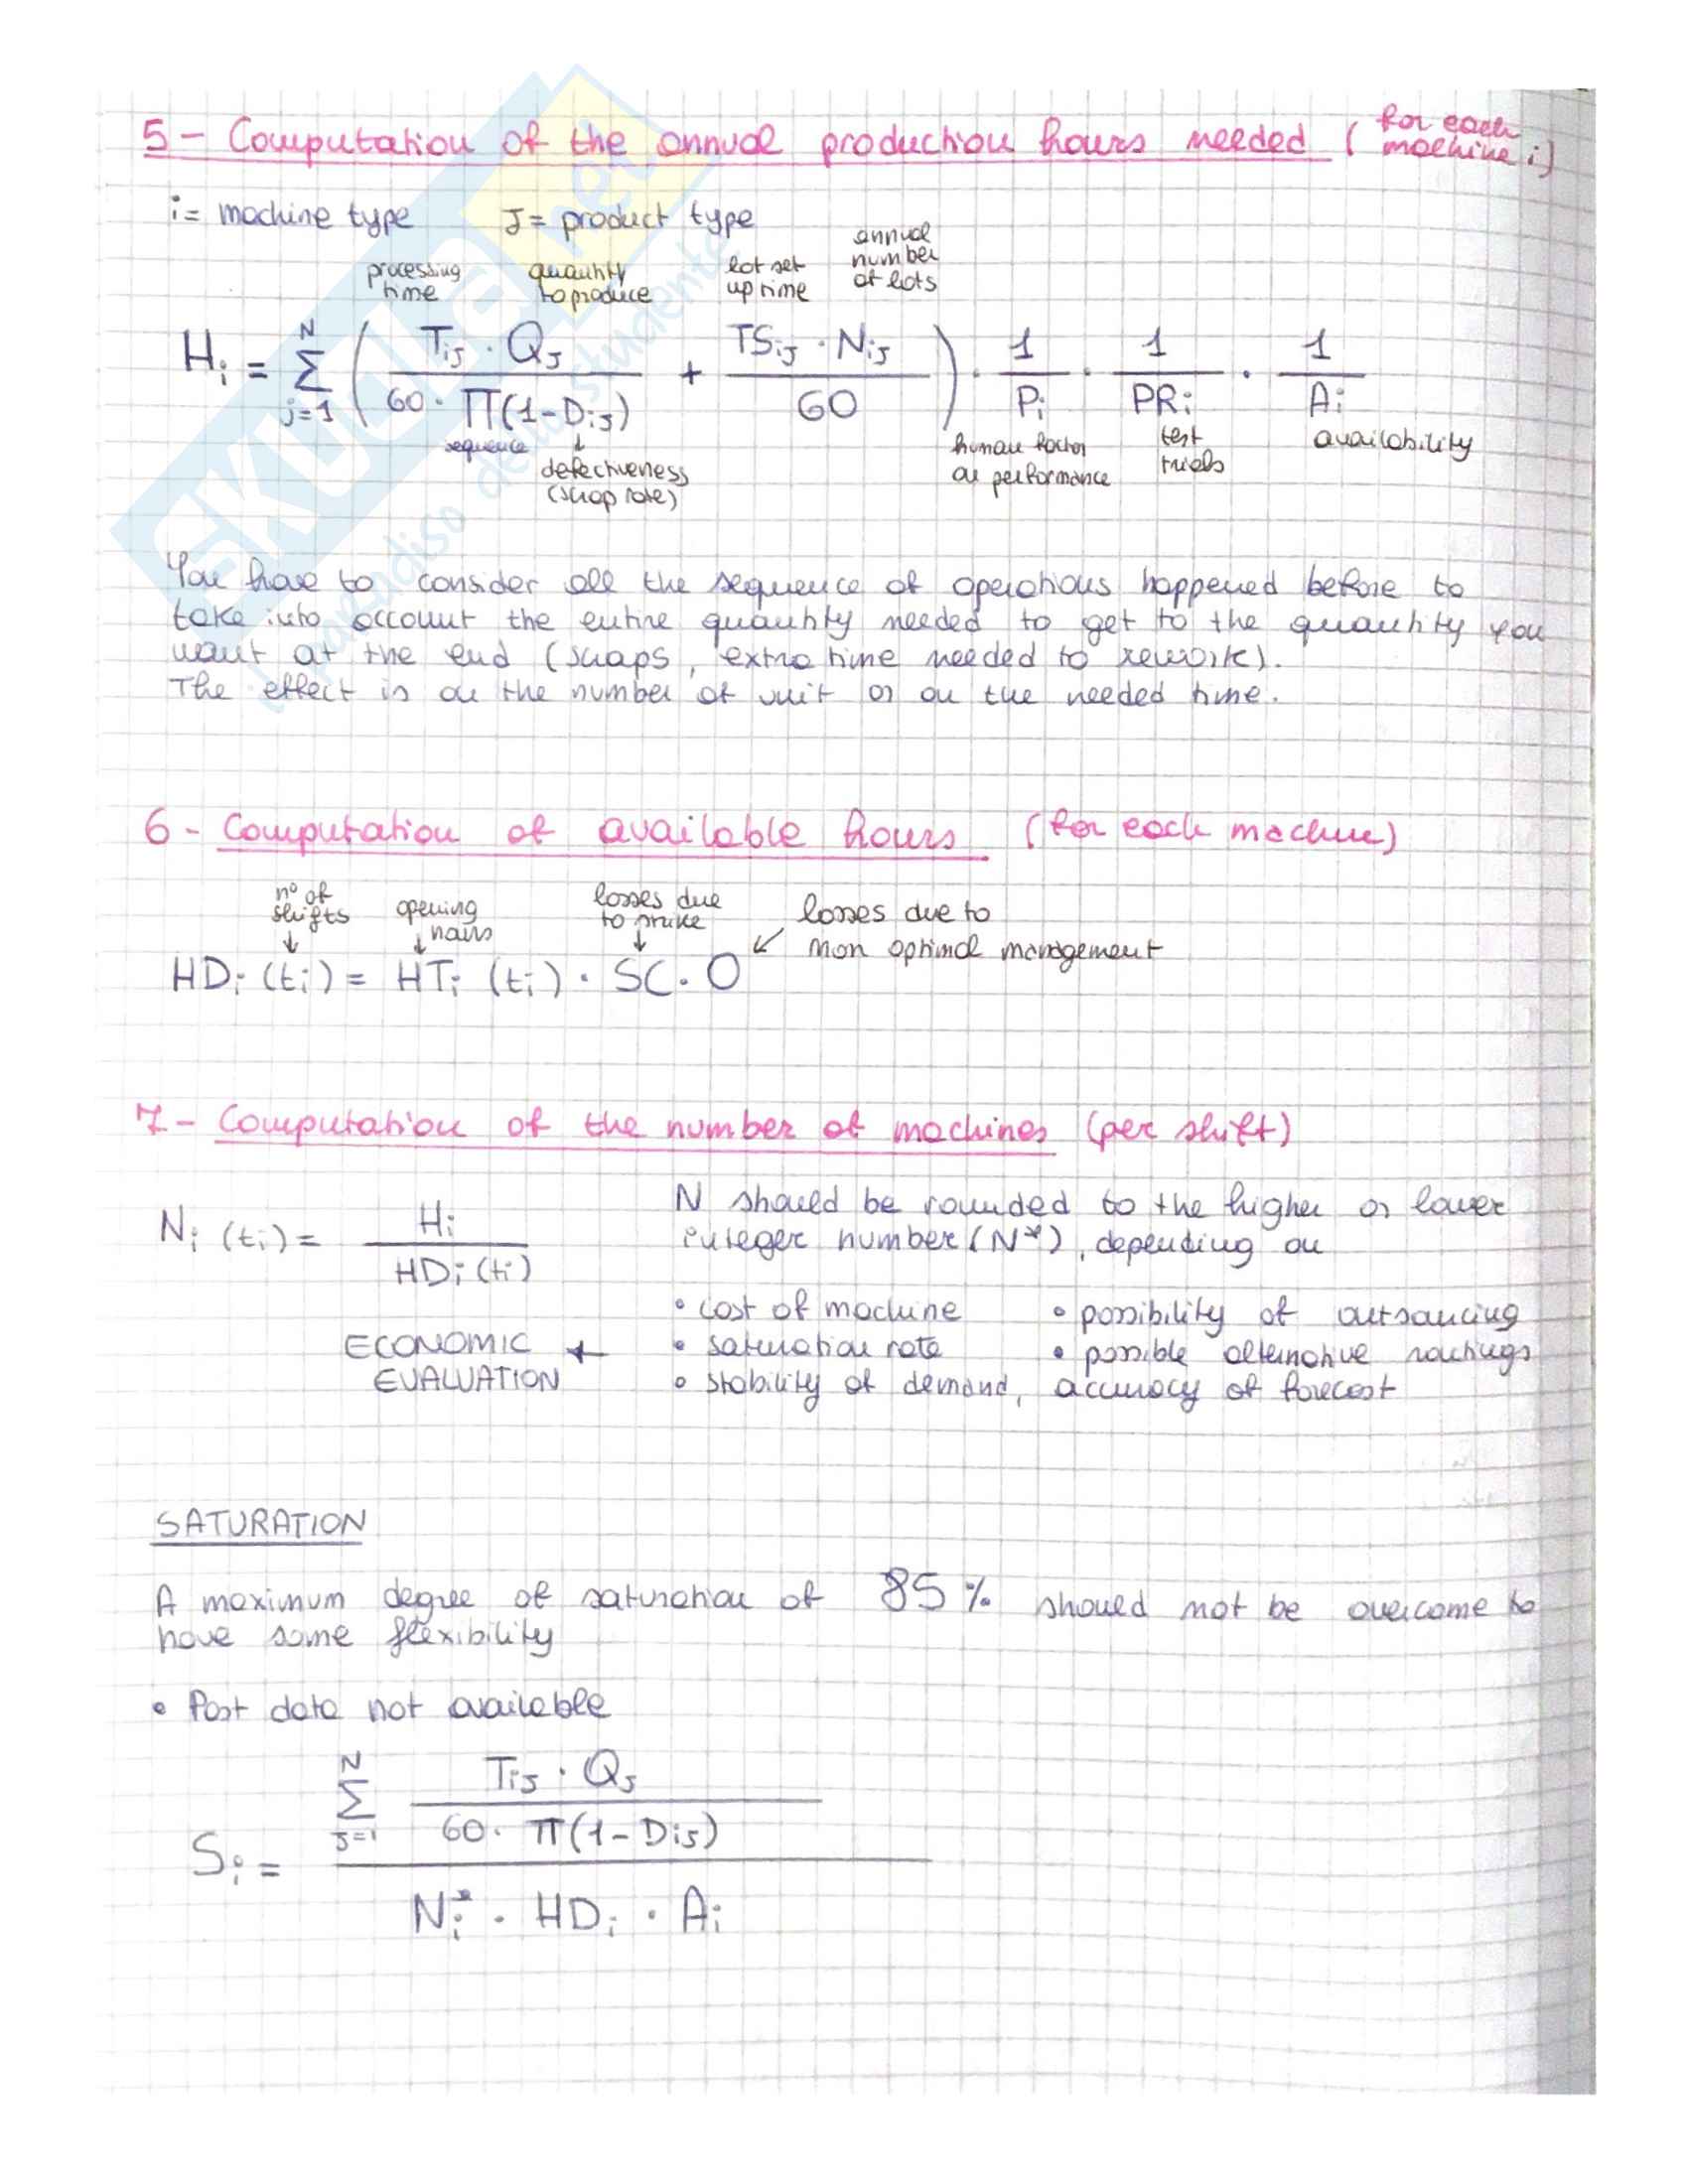 5 - Computation of the annual production hours needed (for each machine i)
i = machine type J = product type
processing time quantity to produce lot set up time annual number of lots
H_i = N Σ j=1 ( T_iJ · Q_J / 60 · Π(1 - D_iJ) + TS_iJ · N_iJ / 60 ) · 1 / P_i · 1 / PR_i · 1 / A_i
sequence ↓ defectiveness (scrap rate) human factor or performance test trials availability
You have to consider all the sequence of operations happened before to
take into account the entire quantity needed to get to the quantity you
want at the end (scaps, extra time needed to rework).
The effect is on the number of unit or on the needed time.
6 - Computation of available hours (for each machine)
n° of shifts opening hours losses due to strike losses due to
non optimal management
HD_i (t_i) = HT_i (t_i) · SC · O
7 - Computation of the number of machines (per shift)
N_i (t_i) = H_i / HD_i (t_i)
N should be rounded to the higher or lower
integer number (N*), depending on
• cost of machine • possibility of outsourcing
ECONOMIC EVALUATION +
• saturation rate • possible alternative routings
• stability of demand, accuracy of forecast
SATURATION
A maximum degree of saturation of 85% should not be overcome to
have some flexibility
• Past data not available
S_i = N Σ J=1 T_iJ · Q_J / 60 · π(1 - D_iJ) / N_i* · HD_i · A_i
SKUOLA.net